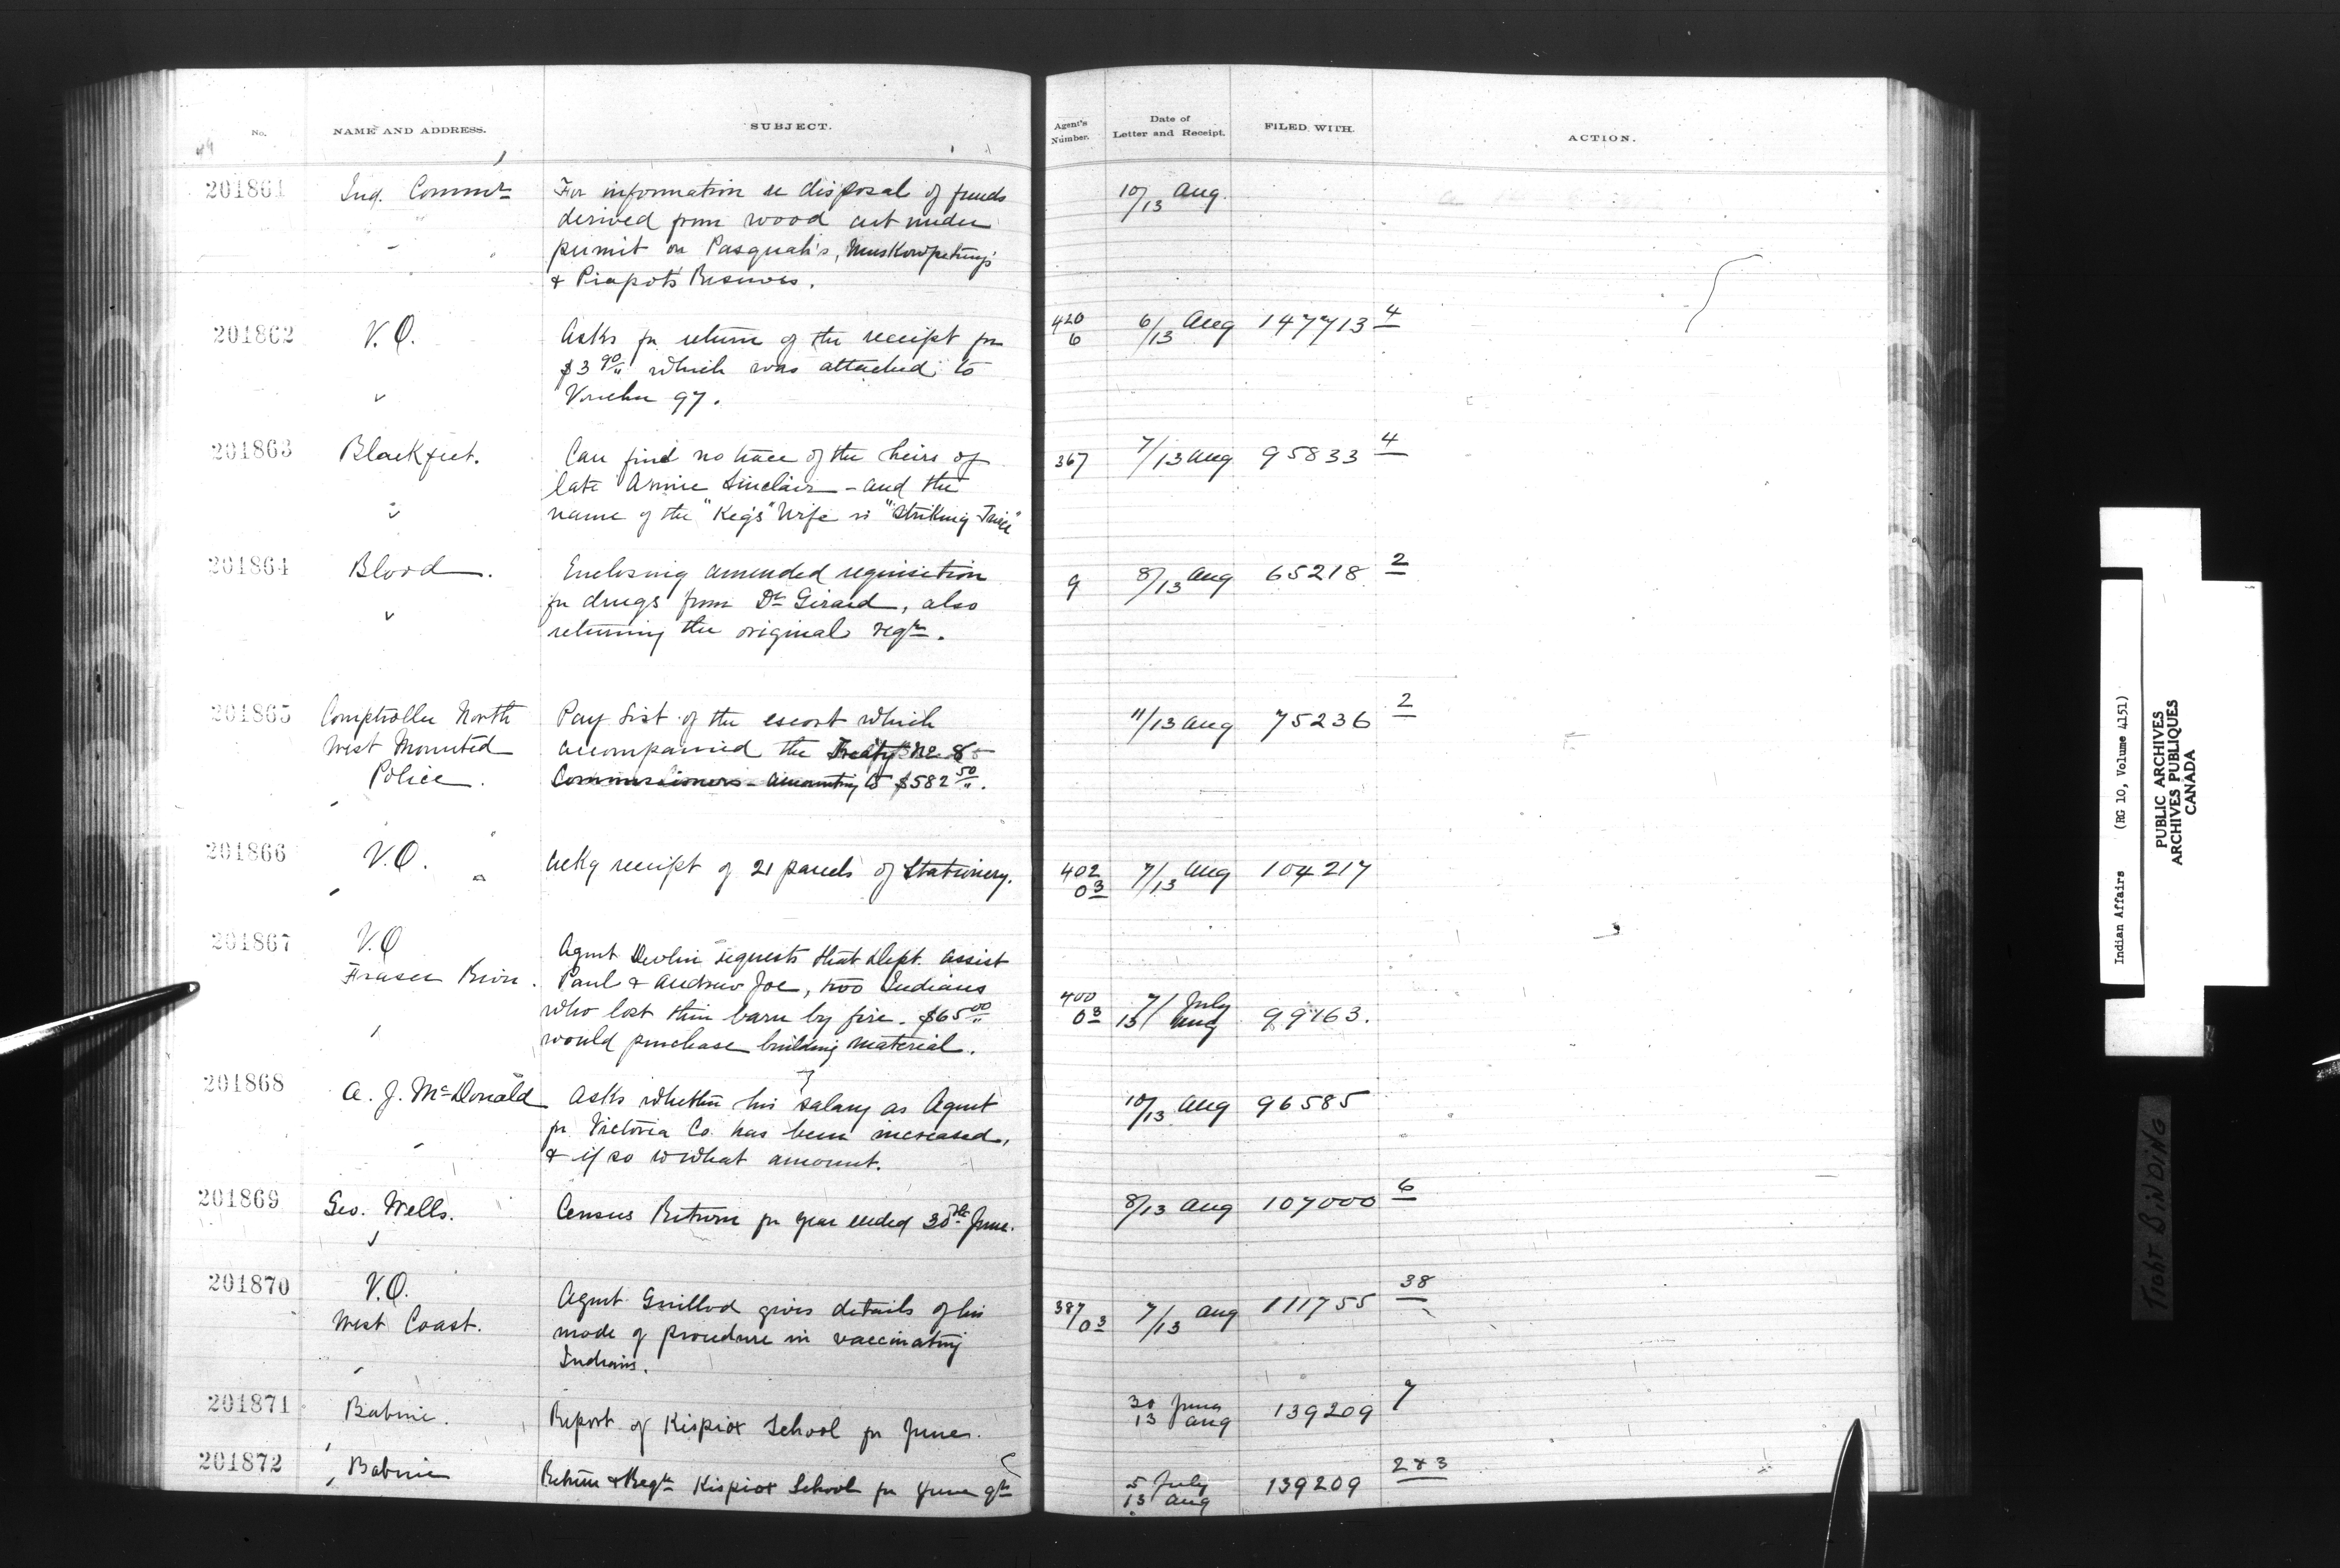 No. NAME AND ADDRESS. SUBJECT. Agent's Number. Date of Letter and Receipt. FILED WITH. ACTION.
201861 Ind. Commr For information re disposal of funds 10/13 Aug.
derived from wood cut under
permit on Pasquah's, Muskowpetung's
& Piapots Reserves.
201862 V.O. Asks for return of the receipt for 420 6 6/13 Aug 147713 4
$3 90/" which was attached to
Voucher 97.
201863 Blackfeet. Can find no trace of the heirs of 367 7/13 Aug 95833 4
late Annie Sinclair - and the
name of the "Keg's" Wife is "Striking Twice"
201864 Blood. Enclosing amended requisition 9 8/13 Aug 65218 2
for drugs from Dr Girard, also
returning the original reqn.
201865 Comptroller North Pay List of the escort which 11/13 Aug 75236 2
West Mounted accompanied the Treaty No 8
Police. Commissioners - amounting to $582 50/".
201866 V.O. Ackg receipt of 21 parcels of Stationery. 402 03 7/13 Aug 104217
201867 V.O Agent Devlin requests that Dept. assist
Fraser River. Paul & Andrew Joe, two Indians
who lost their barn by fire. $65 00/" 400 03 7/ July 13/ Aug 99163.
would purchase building material.
201868 A. J. McDonald Asks whether his salary as Agent 10/13 Aug 96585
for Victoria Co. has been increased,
& if so to what amount.
201869 Geo. Wells. Census Return for year ended 30th June. 8/13 Aug 107000 6
201870 V.O. Agent Guillod gives details of his 387/03 7/13 Aug 111755 38
West Coast. mode of procedure in vaccinating
Indians.
201871 Babine. Report of Kispiox School for June. 30 June 13 Aug 139209 7
201872 Babine Return & Reqn Kispiox School for June qr 5 July 13 Aug 139209 2 & 3
Indian Affairs (RG 10, Volume 4151)
PUBLIC ARCHIVES
ARCHIVES PUBLIQUES
CANADA
TIGHT BINDING